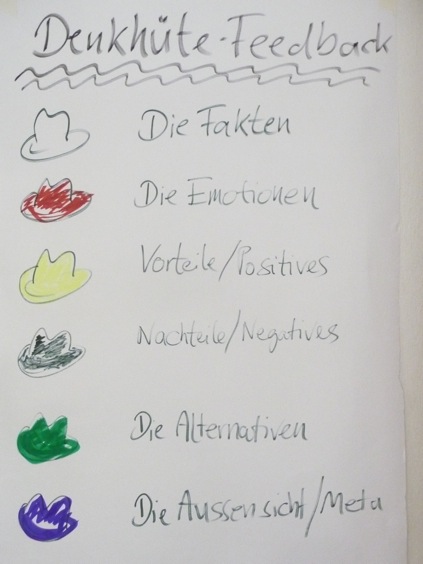 Denkhüte-Feedback
Die Fakten
Die Emotionen
Vorteile/Positives
Nachteile/Negatives
Die Alternativen
Die Aussensicht/Meta